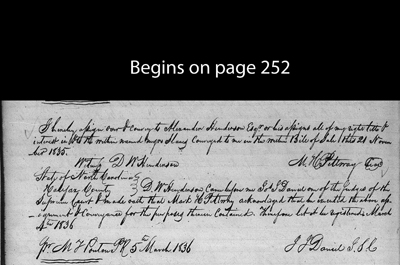 Begins on page 252
I hereby assign over & convey to Alexander Henderson Esqr or his assigns all of my right title &
interest in & to the within named Negro Slaves Conveyed to me in the within Bill of Sale this 21 Novem
ber 1835.
Witness D W Henderson M. H Pettway Seal
State of North Carolina
Halifax County D. W Henderson Came before me J. J Daniel one of the judges of the
Supreme Court & made oath that Mark H Pettway acknowledged that he executed the above ass
ignment & Conveyance for the purposes therein Contained. Therefore let it be registered March
4th 1836
J. J Daniel J. S. C
Jno M F Ponton PR 5th March 1836